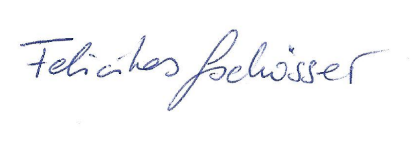 Felicitas Gschösser